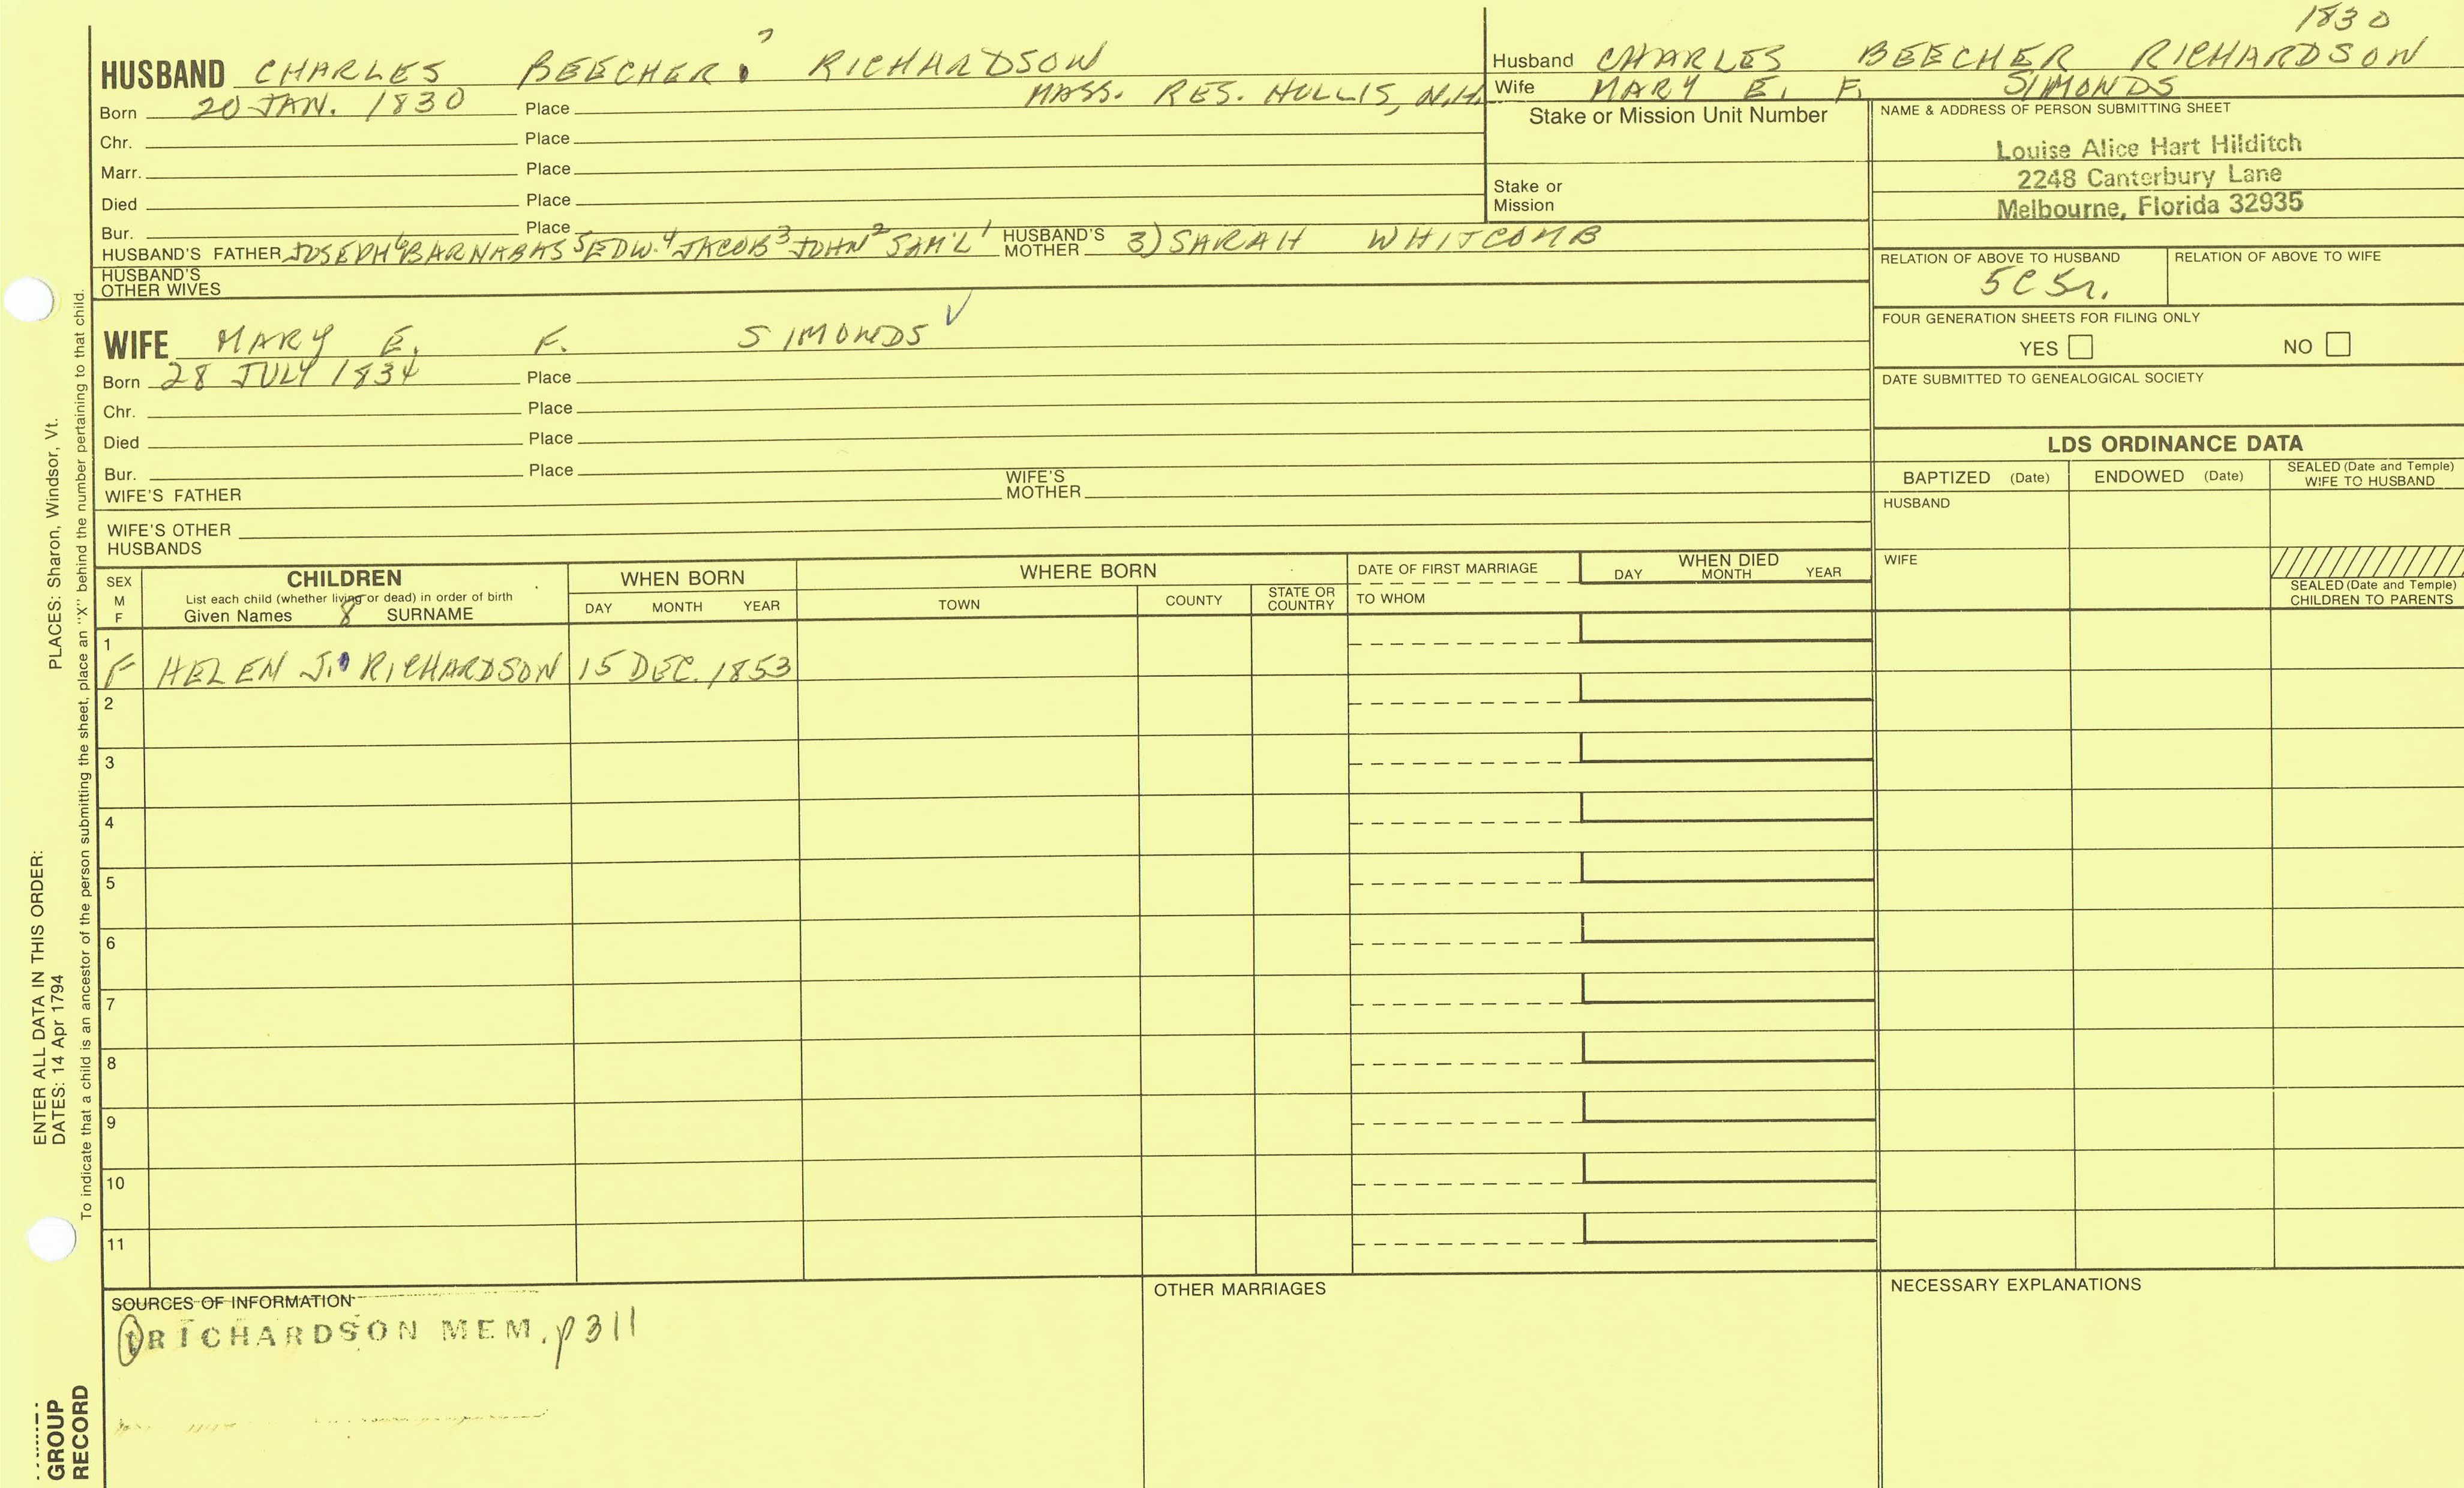 1830
HUSBAND CHARLES BEECHER 7 RICHARDSON
Born 20 JAN. 1830 Place MASS. RES. HOLLIS, N.H.
Chr. Place
Marr. Place
Died Place
Bur. Place
HUSBAND'S FATHER JOSEPH 6 BARNABAS 5 EDW. 4 JACOB 3 JOHN 2 SAM'L 1 HUSBAND'S MOTHER 3) SARAH WHITCOMB
HUSBAND'S OTHER WIVES
Husband CHARLES BEECHER RICHARDSON
Wife MARY E. F. SIMONDS
Stake or Mission Unit Number
Stake or
Mission
NAME & ADDRESS OF PERSON SUBMITTING SHEET
Louise Alice Hart Hilditch
2248 Canterbury Lane
Melbourne, Florida 32935
RELATION OF ABOVE TO HUSBAND RELATION OF ABOVE TO WIFE
5C5r.
FOUR GENERATION SHEETS FOR FILING ONLY
YES NO
DATE SUBMITTED TO GENEALOGICAL SOCIETY
WIFE MARY E. F. SIMONDS ✓
Born 28 JULY 1834 Place
Chr. Place
Died Place
Bur. Place
WIFE'S FATHER WIFE'S MOTHER
WIFE'S OTHER
HUSBANDS
LDS ORDINANCE DATA
BAPTIZED (Date) ENDOWED (Date) SEALED (Date and Temple) WIFE TO HUSBAND
HUSBAND
WIFE
SEALED (Date and Temple)
CHILDREN TO PARENTS
SEX M F
CHILDREN
List each child (whether living or dead) in order of birth
Given Names 8 SURNAME
WHEN BORN
DAY MONTH YEAR
WHERE BORN
TOWN COUNTY STATE OR COUNTRY
DATE OF FIRST MARRIAGE
TO WHOM
WHEN DIED
DAY MONTH YEAR
1
F HELEN J. RICHARDSON 15 DEC. 1853
2
3
4
5
6
7
8
9
10
11
SOURCES OF INFORMATION
1 RICHARDSON MEM. p311
OTHER MARRIAGES
NECESSARY EXPLANATIONS
ENTER ALL DATA IN THIS ORDER:
DATES: 14 Apr 1794 PLACES: Sharon, Windsor, Vt.
To indicate that a child is an ancestor of the person submitting the sheet, place an "X" behind the number pertaining to that child.
GROUP
RECORD